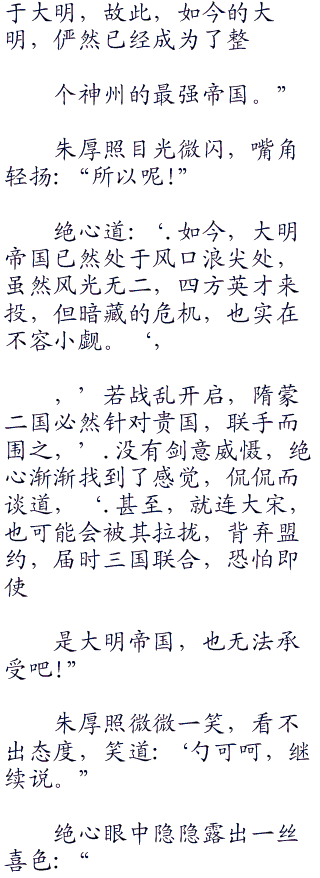 于大明，故此，如今的大
明，俨然已经成为了整
个神州的最强帝国。”
朱厚照目光微闪，嘴角
轻扬：“所以呢！”
绝心道：‘.如今，大明
帝国已然处于风口浪尖处，
虽然风光无二，四方英才来
投，但暗藏的危机，也实在
不容小觑。‘，
，’若战乱开启，隋蒙
二国必然针对贵国，联手而
围之，’.没有剑意威慑，绝
心渐渐找到了感觉，侃侃而
谈道，‘.甚至，就连大宋，
也可能会被其拉拢，背弃盟
约，届时三国联合，恐怕即
使
是大明帝国，也无法承
受吧！”
朱厚照微微一笑，看不
出态度，笑道：‘勺可呵，继
续说。”
绝心眼中隐隐露出一丝
喜色：“